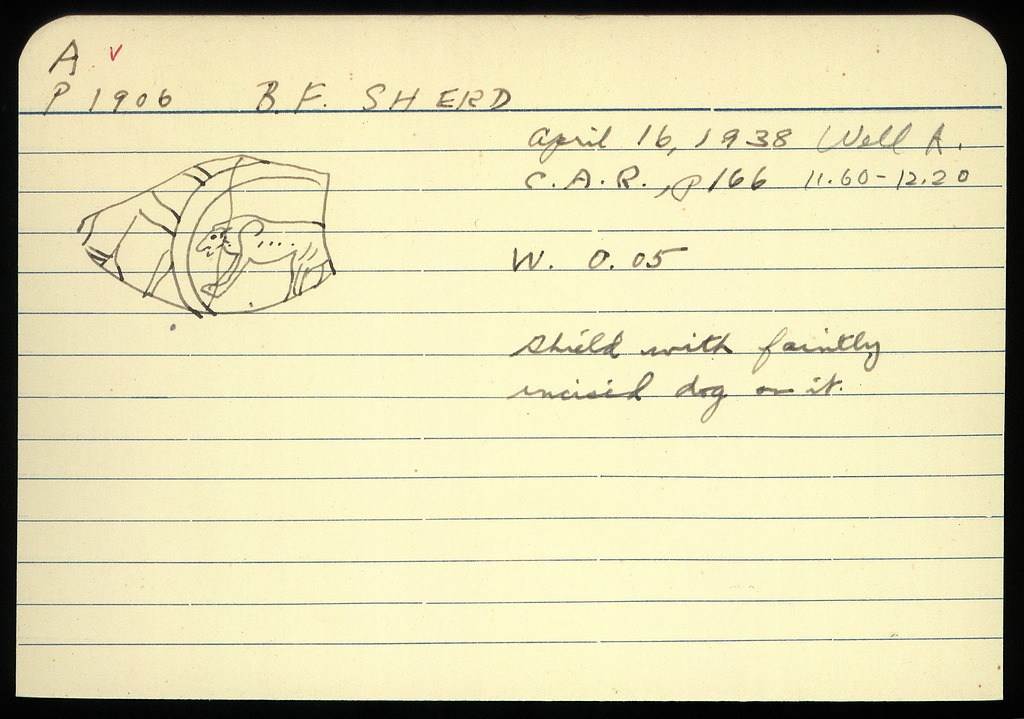 A v
P 1906 B.F. SHERD
April 16, 1938 Well A.
C.A.R., p 166 11.60-12.20
W. 0.05
Shield with faintly
incised dog on it.